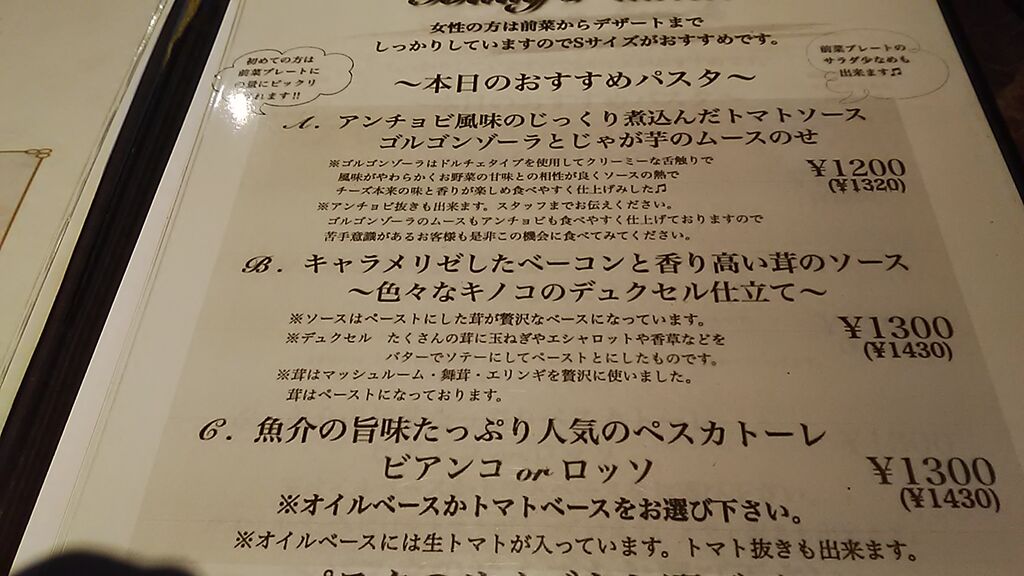 女性の方は前菜からデザートまで
しっかりしていますのでSサイズがおすすめです。
初めての方は
前菜プレートに
量にビックリ
れます!!
前菜プレートの
サラダ少なめも
出来ます♫
～本日のおすすめパスタ～
A. アンチョビ風味のじっくり煮込んだトマトソース
ゴルゴンゾーラとじゃが芋のムースのせ
※ゴルゴンゾーラはドルチェタイプを使用してクリーミーな舌触りで
風味がやわらかくお野菜の甘味との相性が良くソースの熱で
チーズ本来の味と香りが楽しめ食べやすく仕上げみした♫
※アンチョビ抜きも出来ます。スタッフまでお伝えください。
ゴルゴンゾーラのムースもアンチョビも食べやすく仕上げておりますので
苦手意識があるお客様も是非この機会に食べてみてください。
¥1200
(¥1320)
B. キャラメリゼしたベーコンと香り高い茸のソース
～色々なキノコのデュクセル仕立て～
※ソースはペーストにした茸が贅沢なベースになっています。
※デュクセル たくさんの茸に玉ねぎやエシャロットや香草などを
バターでソテーにしてペーストとにしたものです。
※茸はマッシュルーム・舞茸・エリンギを贅沢に使いました。
茸はペーストになっております。
¥1300
(¥1430)
C. 魚介の旨味たっぷり人気のペスカトーレ
ビアンコ or ロッソ
※オイルベースかトマトベースをお選び下さい。
※オイルベースには生トマトが入っています。トマト抜きも出来ます。
¥1300
(¥1430)